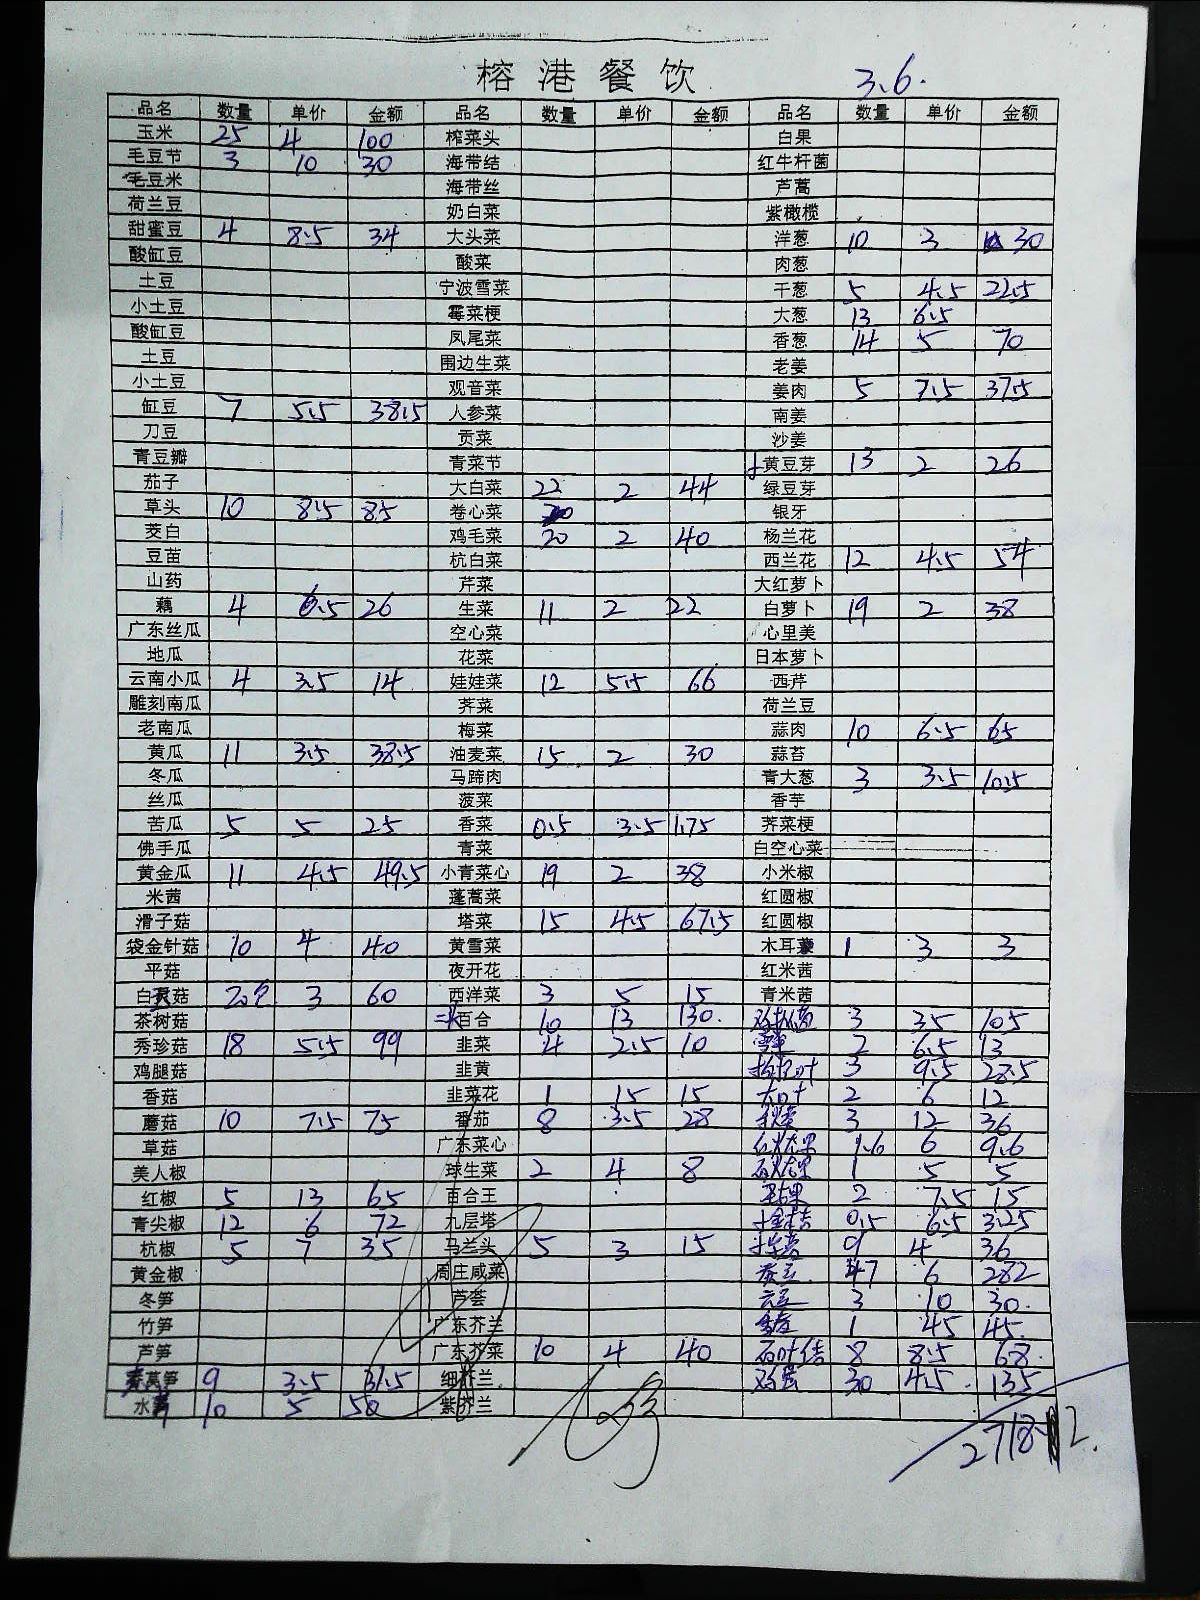 榕港餐饮 3.6.
品名 数量 单价 金额 品名 数量 单价 金额 品名 数量 单价 金额
玉米 25 4 100 榨菜头 白果
毛豆节 3 10 30 海带结 红牛杆菌
毛豆米 海带丝 芦蒿
荷兰豆 奶白菜 紫橄榄
甜蜜豆 4 8.5 34 大头菜 洋葱 10 3 30
酸缸豆 酸菜 肉葱
土豆 宁波雪菜 干葱 5 4.5 22.5
小土豆 霉菜梗 大葱 13 6.5
酸缸豆 凤尾菜 香葱 14 5 70
土豆 围边生菜 老姜
小土豆 观音菜 姜肉 5 7.5 37.5
缸豆 7 5.5 38.5 人参菜 南姜
刀豆 贡菜 沙姜
青豆瓣 青菜节 黄豆芽 13 2 26
茄子 大白菜 22 2 44 绿豆芽
草头 10 8.5 85 卷心菜 银牙
茭白 鸡毛菜 20 2 40 杨兰花
豆苗 杭白菜 西兰花 12 4.5 54
山药 芹菜 大红萝卜
藕 4 6.5 26 生菜 11 2 22 白萝卜 19 2 38
广东丝瓜 空心菜 心里美
地瓜 花菜 日本萝卜
云南小瓜 4 3.5 14 娃娃菜 12 5.5 66 西芹
雕刻南瓜 荠菜 荷兰豆
老南瓜 梅菜 蒜肉 10 6.5 65
黄瓜 11 3.5 38.5 油麦菜 15 2 30 蒜苔
冬瓜 马蹄肉 青大葱 3 3.5 10.5
丝瓜 菠菜 香芋
苦瓜 5 5 25 香菜 0.5 3.5 1.75 荠菜梗
佛手瓜 青菜 白空心菜
黄金瓜 11 4.5 49.5 小青菜心 19 2 38 小米椒
米茜 蓬蒿菜 红圆椒
滑子菇 塔菜 15 4.5 67.5 红圆椒
袋金针菇 10 4 40 黄雪菜 木耳菜 1 3 3
平菇 夜开花 红米茜
白灵菇 20 3 60 西洋菜 3 5 15 青米茜
茶树菇 百合 10 13 130. 3 35 105
秀珍菇 18 5.5 99 韭菜 4 2.5 10 2 6.5 13
鸡腿菇 韭黄 3 9.5 28.5
香菇 韭菜花 1 15 15 2 6 12
蘑菇 10 7.5 75 番茄 8 3.5 28 3 12 36
草菇 广东菜心 1.6 6 9.6
美人椒 球生菜 2 4 8 1 5 5
红椒 5 13 65 百合王 2 7.5 15
青尖椒 12 6 72 九层塔 0.5 6.5 3.25
杭椒 5 7 35 马兰头 5 3 15 9 4 36
黄金椒 周庄咸菜 47 6 282
冬笋 芦荟 3 10 30.
竹笋 广东芥兰 1 45 45.
芦笋 广东芥菜 10 4 40 8 8.5 68.
莴笋 9 3.5 31.5 细芥兰 鸡蛋 30 4.5 135
水 10 5 50 紫芥兰